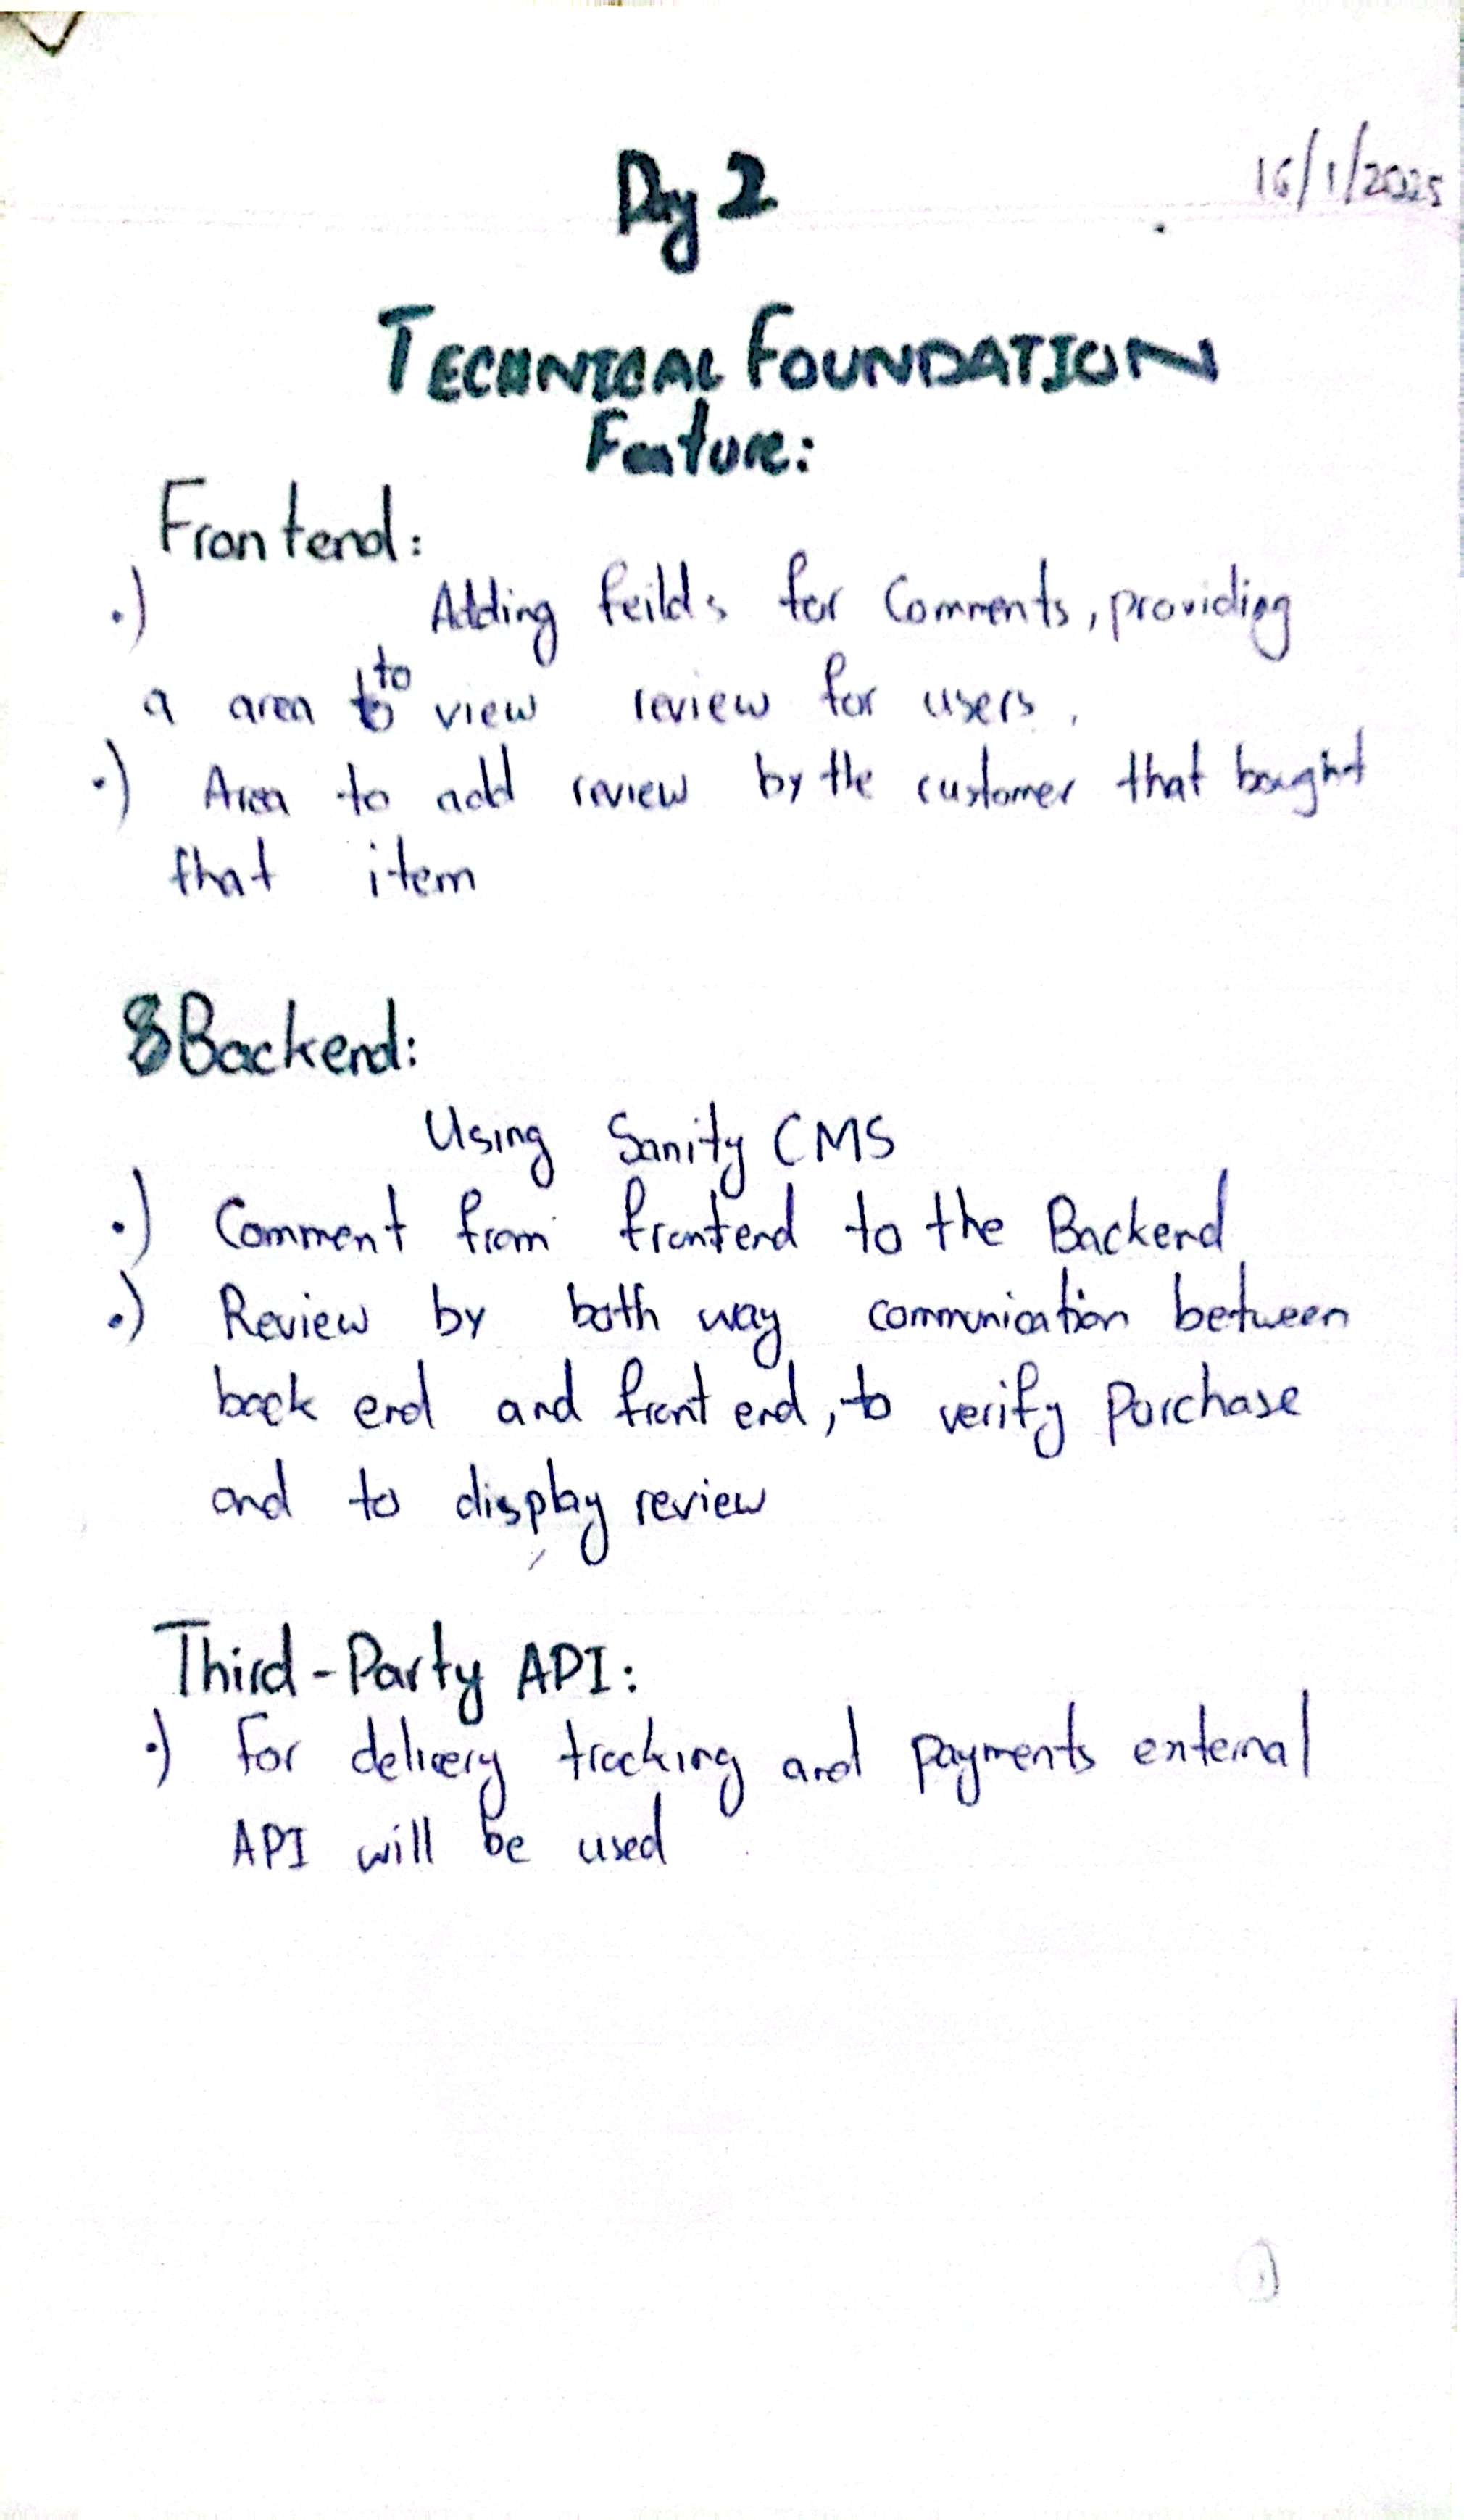 Day 2
16/1/2025
TECHNICAL FOUNDATION
Feature:
Frontend:
.) Adding feilds for Comments, providing
a area to view review for users.
.) Area to add review by the customer that bought
that item
Backend:
Using Sanity CMS
.) Comment from frontend to the Backend
.) Review by both way communication between
back end and front end, to verify Purchase
and to display review
Third-Party API:
.) For delivery tracking and payments external
API will be used